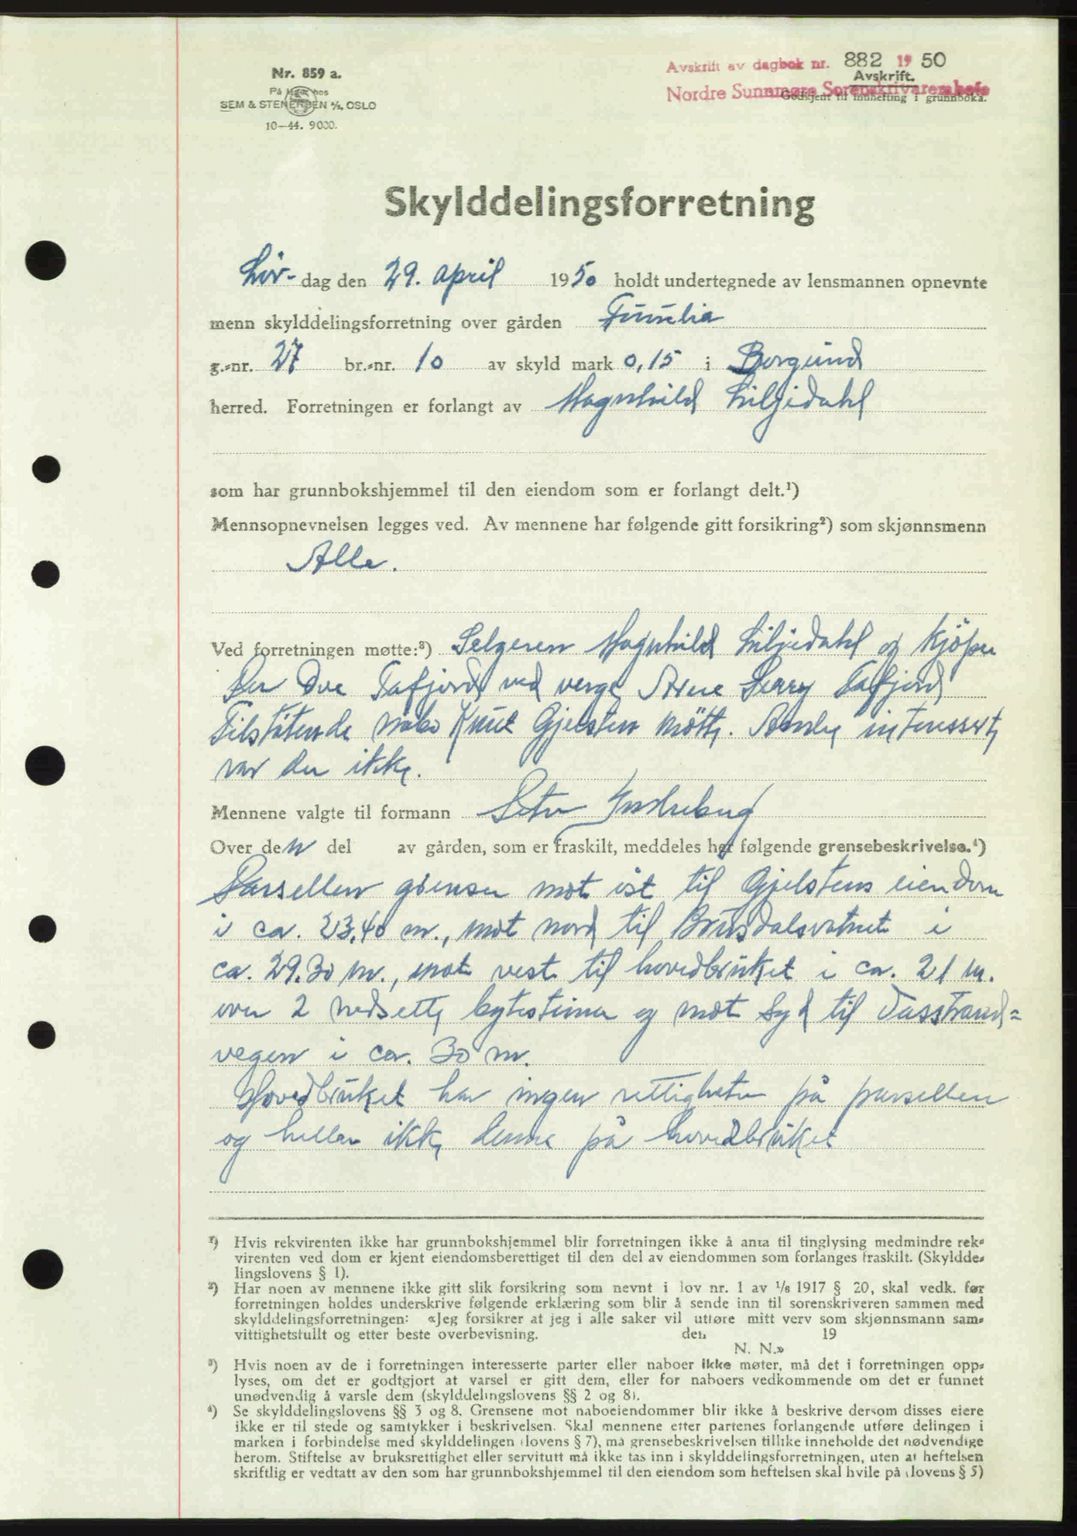 Nr. 859 a.
På lager hos
SEM & STENERSEN A/S, OSLO
10—44. 9000.
Avskrift av dagbok nr. 882 1950
Avskrift.
Nordre Sunnmøre Sorenskrivarembete
Godkjent til innhefting i grunnboka.
Skylddelingsforretning
Lør-dag den 29. april 1950 holdt undertegnede av lensmannen opnevnte
menn skylddelingsforretning over gården Furulia
g.-nr. 27 br.-nr. 10 av skyld mark 0,15 i Borgund
herred. Forretningen er forlangt av Magnhild Liljedahl
som har grunnbokshjemmel til den eiendom som er forlangt delt.¹)
Mennsopnevnelsen legges ved. Av mennene har følgende gitt forsikring²) som skjønnsmenn
Alle.
Ved forretningen møtte:³) Selgeren Magnhild Liljedahl og kjøper
Per Ove Tafjord ved verge Arne Serry Tafjord
Tilstøtende nabo Knut Gjelsten møtte. Andre interesserte
var der ikke.
Mennene valgte til formann
Over den del av gården, som er fraskilt, meddeles her følgende grensebeskrivelse.⁴)
Parsellen grenser mot øst til Gjelstens eiendom
i ca. 23.40 m., mot nord til Brusdalsvatnet i
ca. 29.30 m., mot vest til hovedbruket i ca. 21 m.
over 2 nedsette bytesteiner og mot Syd til Vasstrand=
vegen i ca. 30 m.
Hovedbruket har ingen rettigheter på parsellen
og heller ikke denne på hovedbruket
¹) Hvis rekvirenten ikke har grunnbokshjemmel blir forretningen ikke å anta til tinglysing medmindre rek-
virenten ved dom er kjent eiendomsberettiget til den del av eiendommen som forlanges fraskilt. (Skyldde-
lingslovens § 1).
²) Har noen av mennene ikke gitt slik forsikring som nevnt i lov nr. 1 av ¹/₈ 1917 § 20, skal vedk. før
forretningen holdes underskrive følgende erklæring som blir å sende inn til sorenskriveren sammen med
skylddelingsforretningen: «Jeg forsikrer at jeg i alle saker vil utføre mitt verv som skjønnsmann sam-
vittighetsfullt og etter beste overbevisning. den 19
N. N.»
³) Hvis noen av de i forretningen interesserte parter eller naboer ikke møter, må det i forretningen opp-
lyses, om det er godtgjort at varsel er gitt dem, eller for naboers vedkommende om det er funnet
unødvendig å varsle dem (skylddelingslovens §§ 2 og 8).
⁴) Se skylddelingslovens §§ 3 og 8. Grensene mot naboeiendommer blir ikke å beskrive dersom disses eiere
ikke er til stede og samtykker i beskrivelsen. Skal mennene etter partenes forlangende utføre delingen i
marken i forbindelse med skylddelingen (lovens § 7), må grensebeskrivelsen tillike inneholde det nødvendige
herom. Stiftelse av bruksrettighet eller servitutt må ikke tas inn i skylddelingsforretningen, uten at heftelsen
skriftlig er vedtatt av den som har grunnbokshjemmel til den eiendom som heftelsen skal hvile på (lovens § 5)